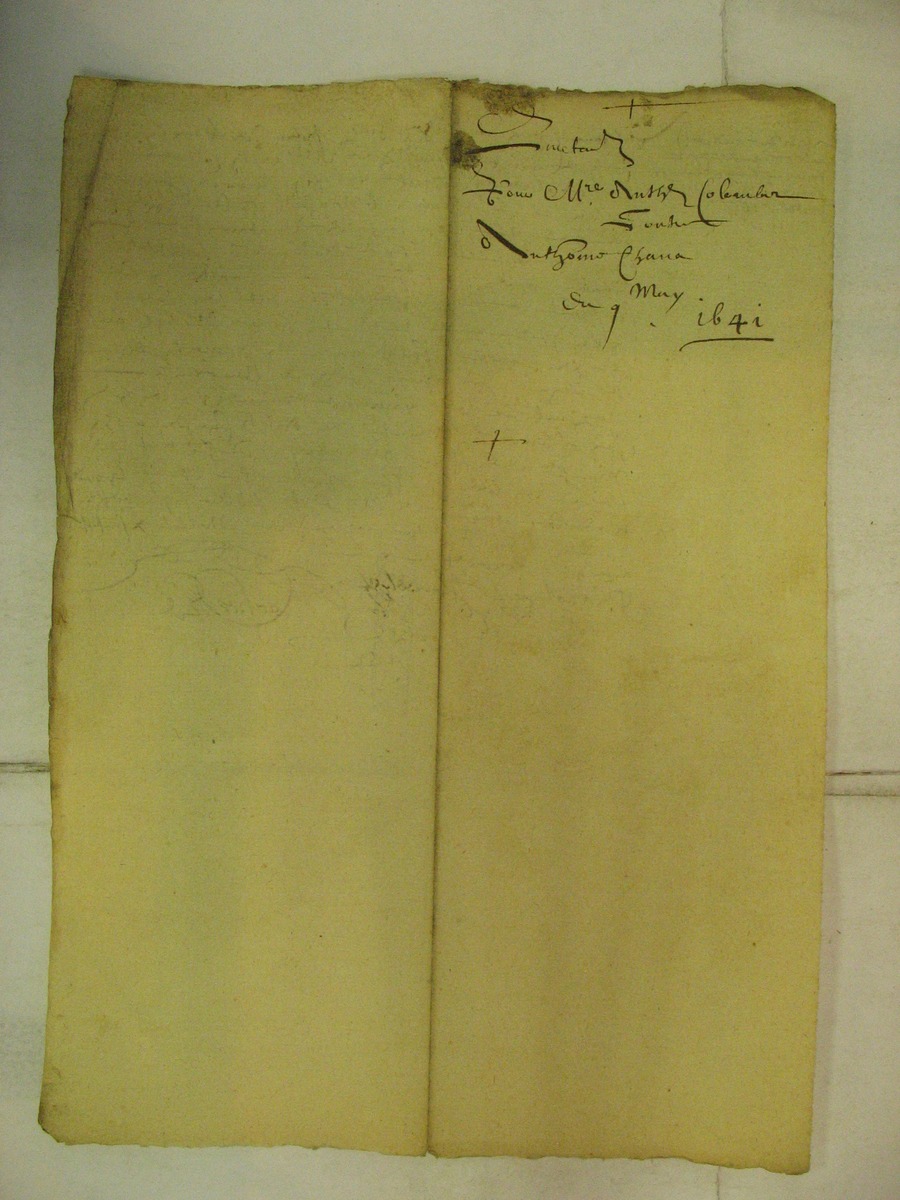 +
Pour Mre Anthe Colembier
Contre
Anthoine Chana
du 9 May
1641
+